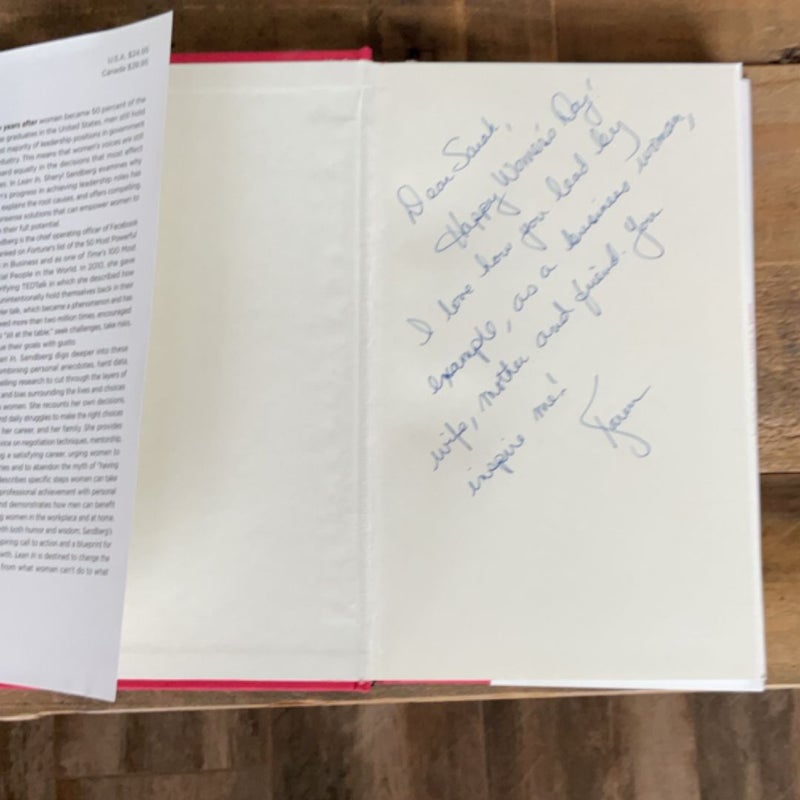 U.S.A. $24.95
Canada $28.95
years after women became 50 percent of the
graduates in the United States, men still hold
majority of leadership positions in government
dustry. This means that women's voices are still
ard equally in the decisions that most affect
es. In Lean In, Sheryl Sandberg examines why
n's progress in achieving leadership roles has
explains the root causes, and offers compelling
nsense solutions that can empower women to
their full potential.
dberg is the chief operating officer of Facebook
anked on Fortune's list of the 50 Most Powerful
in Business and as one of Time's 100 Most
ial People in the World. In 2010, she gave
rifying TEDTalk in which she described how
unintentionally hold themselves back in their
er talk, which became a phenomenon and has
ed more than two million times, encouraged
"sit at the table," seek challenges, take risks,
ue their goals with gusto.
an In, Sandberg digs deeper into these
ombining personal anecdotes, hard data,
elling research to cut through the layers of
and bias surrounding the lives and choices
women. She recounts her own decisions,
nd daily struggles to make the right choices
her career, and her family. She provides
vice on negotiation techniques, mentorship,
g a satisfying career, urging women to
ries and to abandon the myth of "having
describes specific steps women can take
professional achievement with personal
nd demonstrates how men can benefit
g women in the workplace and at home.
ith both humor and wisdom, Sandberg's
spiring call to action and a blueprint for
wth. Lean In is destined to change the
from what women can't do to what
Dear Sarah,
Happy Women's Day!
I love how you lead by
example, as a business woman,
wife, mother and friend. You
inspire me!